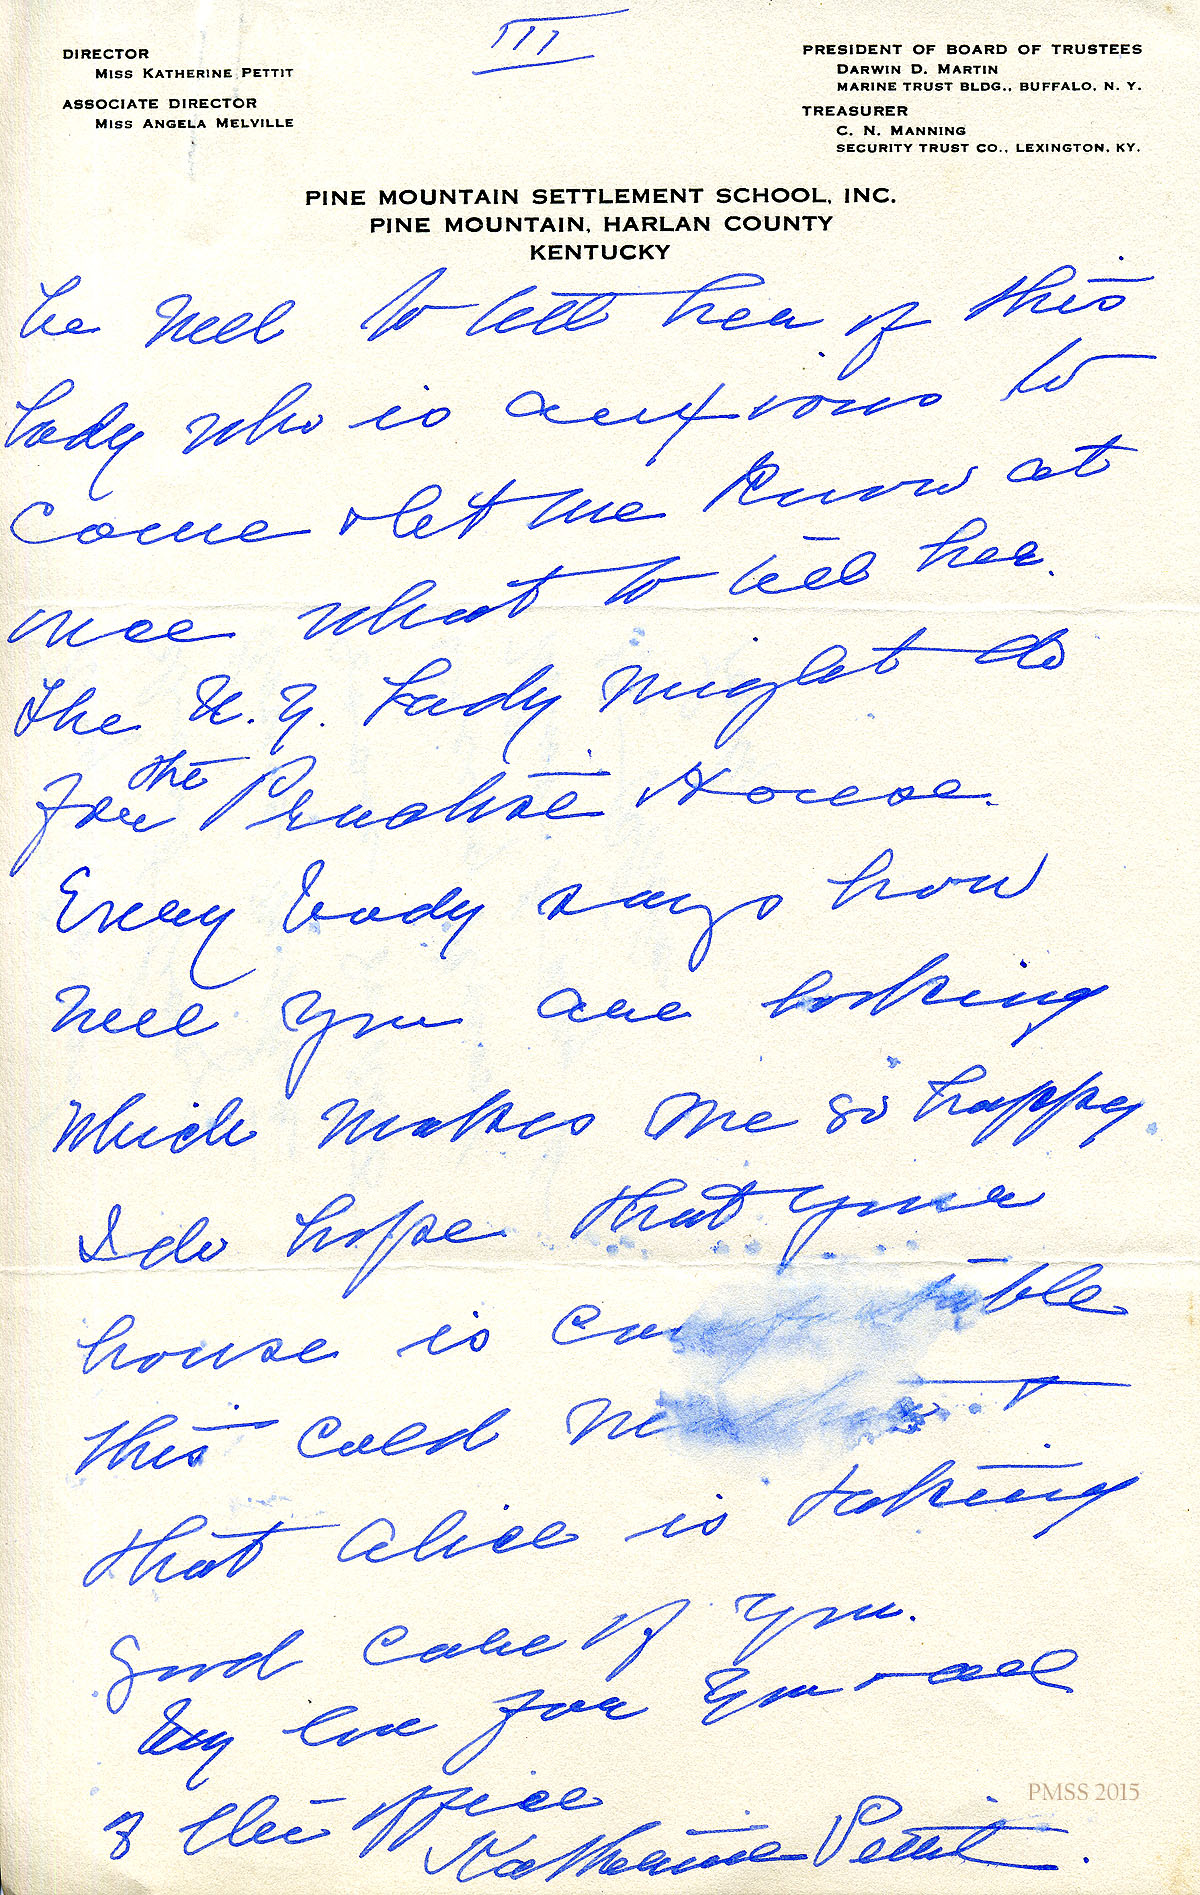 III
DIRECTOR
MISS KATHERINE PETTIT
ASSOCIATE DIRECTOR
MISS ANGELA MELVILLE
PRESIDENT OF BOARD OF TRUSTEES
DARWIN D. MARTIN
MARINE TRUST BLDG., BUFFALO, N. Y.
TREASURER
C. N. MANNING
SECURITY TRUST CO., LEXINGTON, KY.
PINE MOUNTAIN SETTLEMENT SCHOOL, INC.
PINE MOUNTAIN, HARLAN COUNTY
KENTUCKY
be well to tell her of this
lady who is anxious to
come & let me know at
once what to tell her.
The N.Y. Lady might do
for the Practice House.
Every body says how
well you are looking
which makes me so happy
I do hope that your
house is comfortable
this cold weather &
that Alice is taking
good care of you.
My love for you & all
of the office
Katherine Pettit.
PMSS 2015